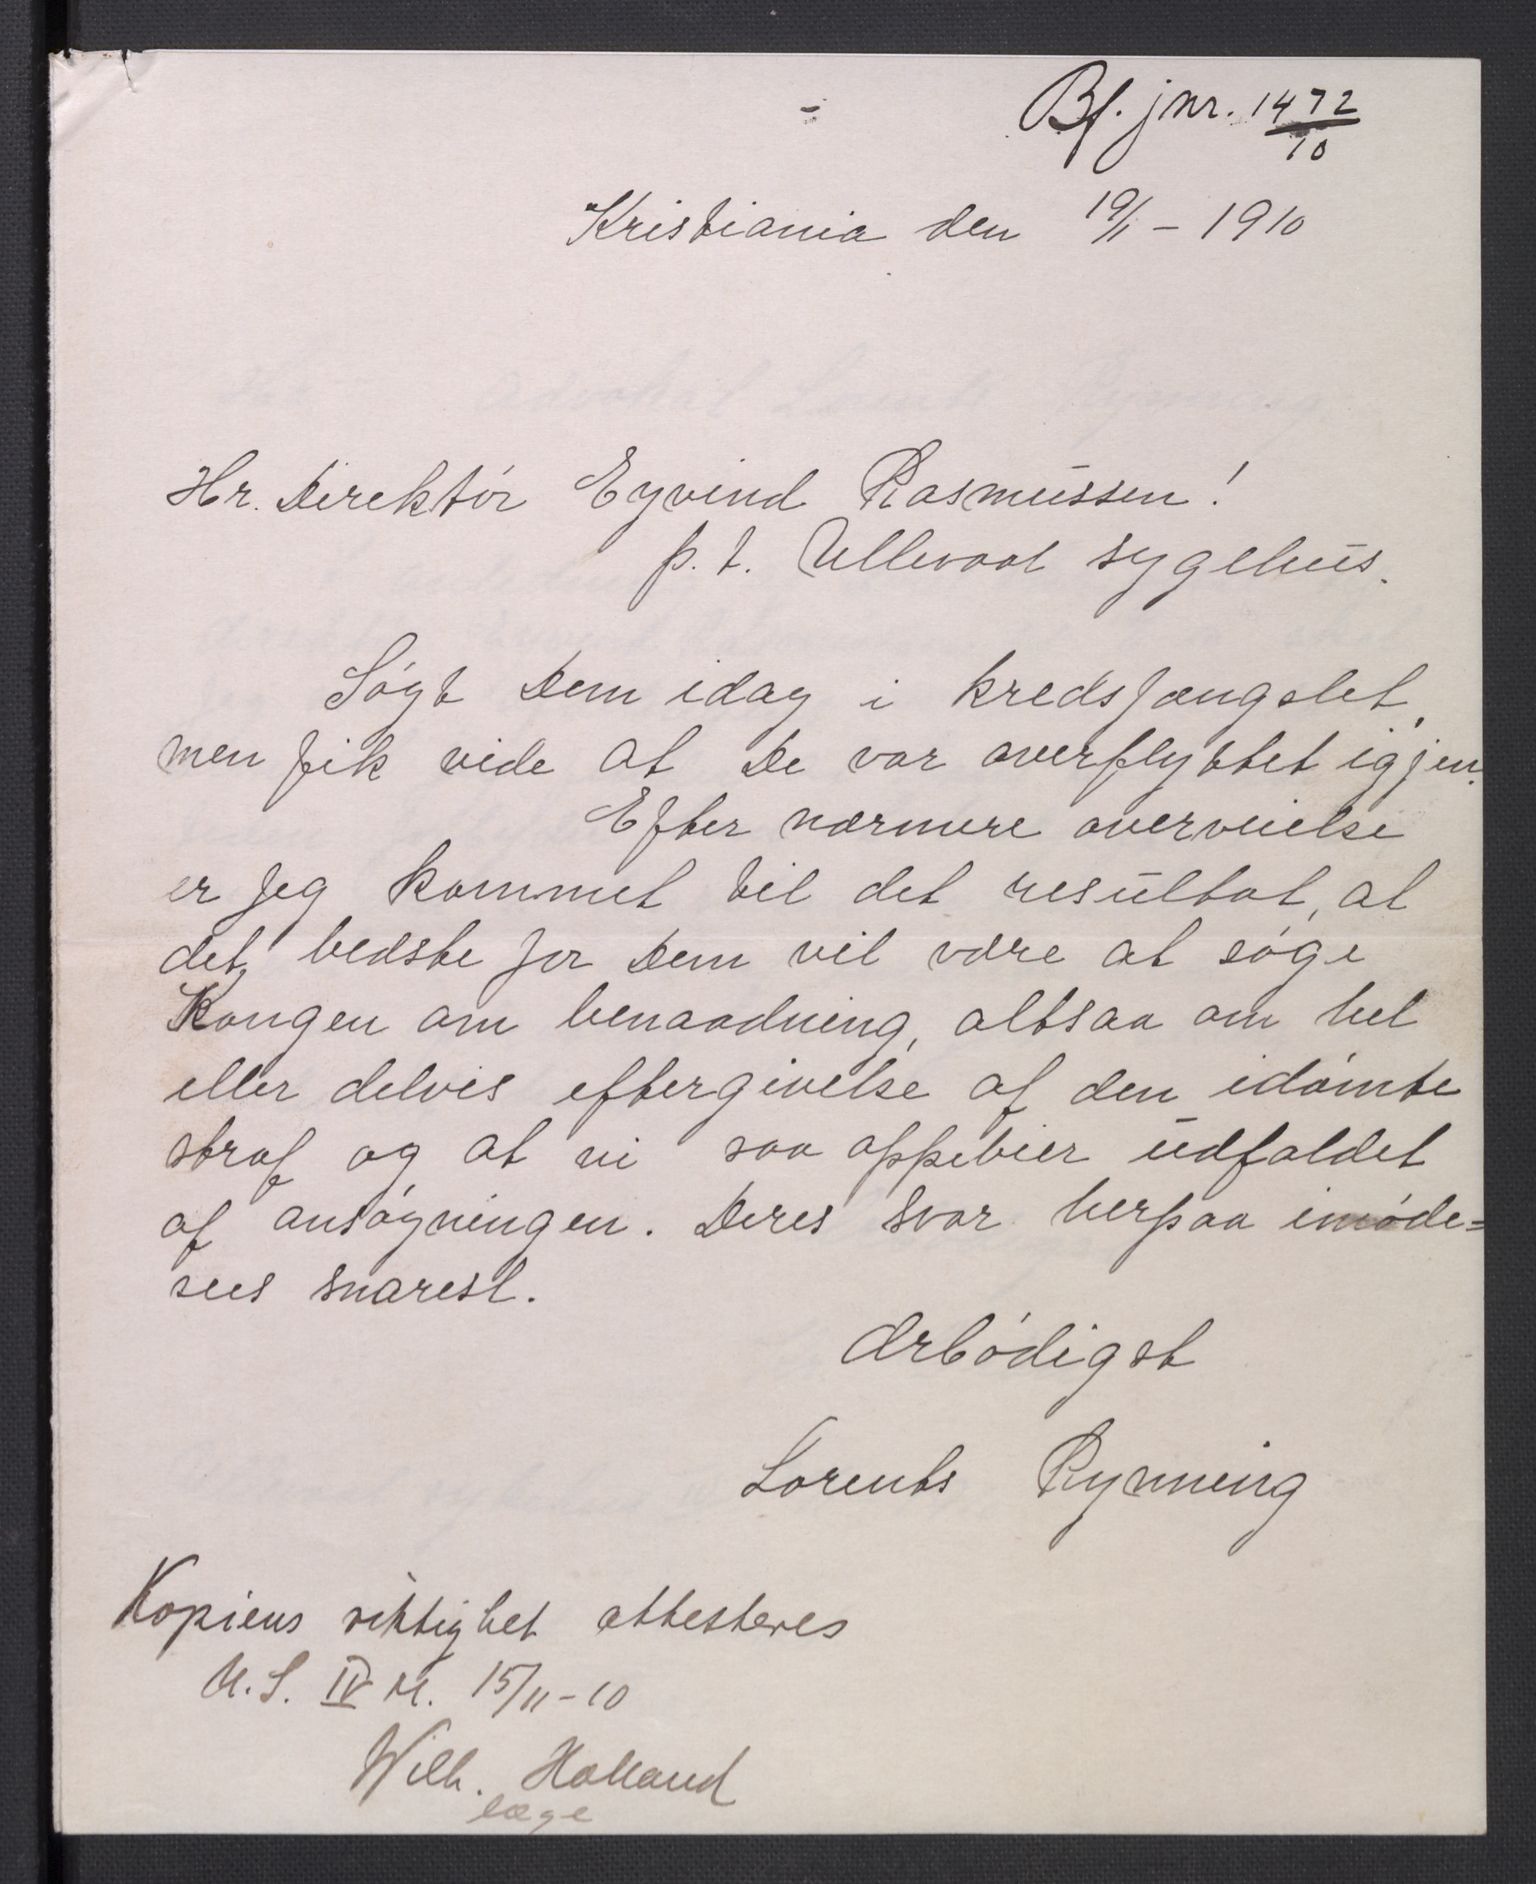 Bf. jnr. 1472/10
Kristiania den 19/1 - 1910
Hr. Direktör Eyvind Rasmussen!
p. t. Ullevaal sygehus.
Søgt Dem idag i kredsfængslet,
men fik vide at De var overflyttet igjen.
Efter nærmere overveielse
er jeg kommet til det resultat, at
det bedste for Dem vil være at søge
Kongen om benaadning, altsaa om hel
eller delvis eftergivelse af den idømte
straf og at vi saa oppebier udfaldet
af ansøgningen. Deres svar herpaa imøde=
sees snarest.
Ærbödigst
Lorents Rynning
Kopiens riktighet attesteres
U. S. IV M. 15/11-10
Wilh. Holland
læge